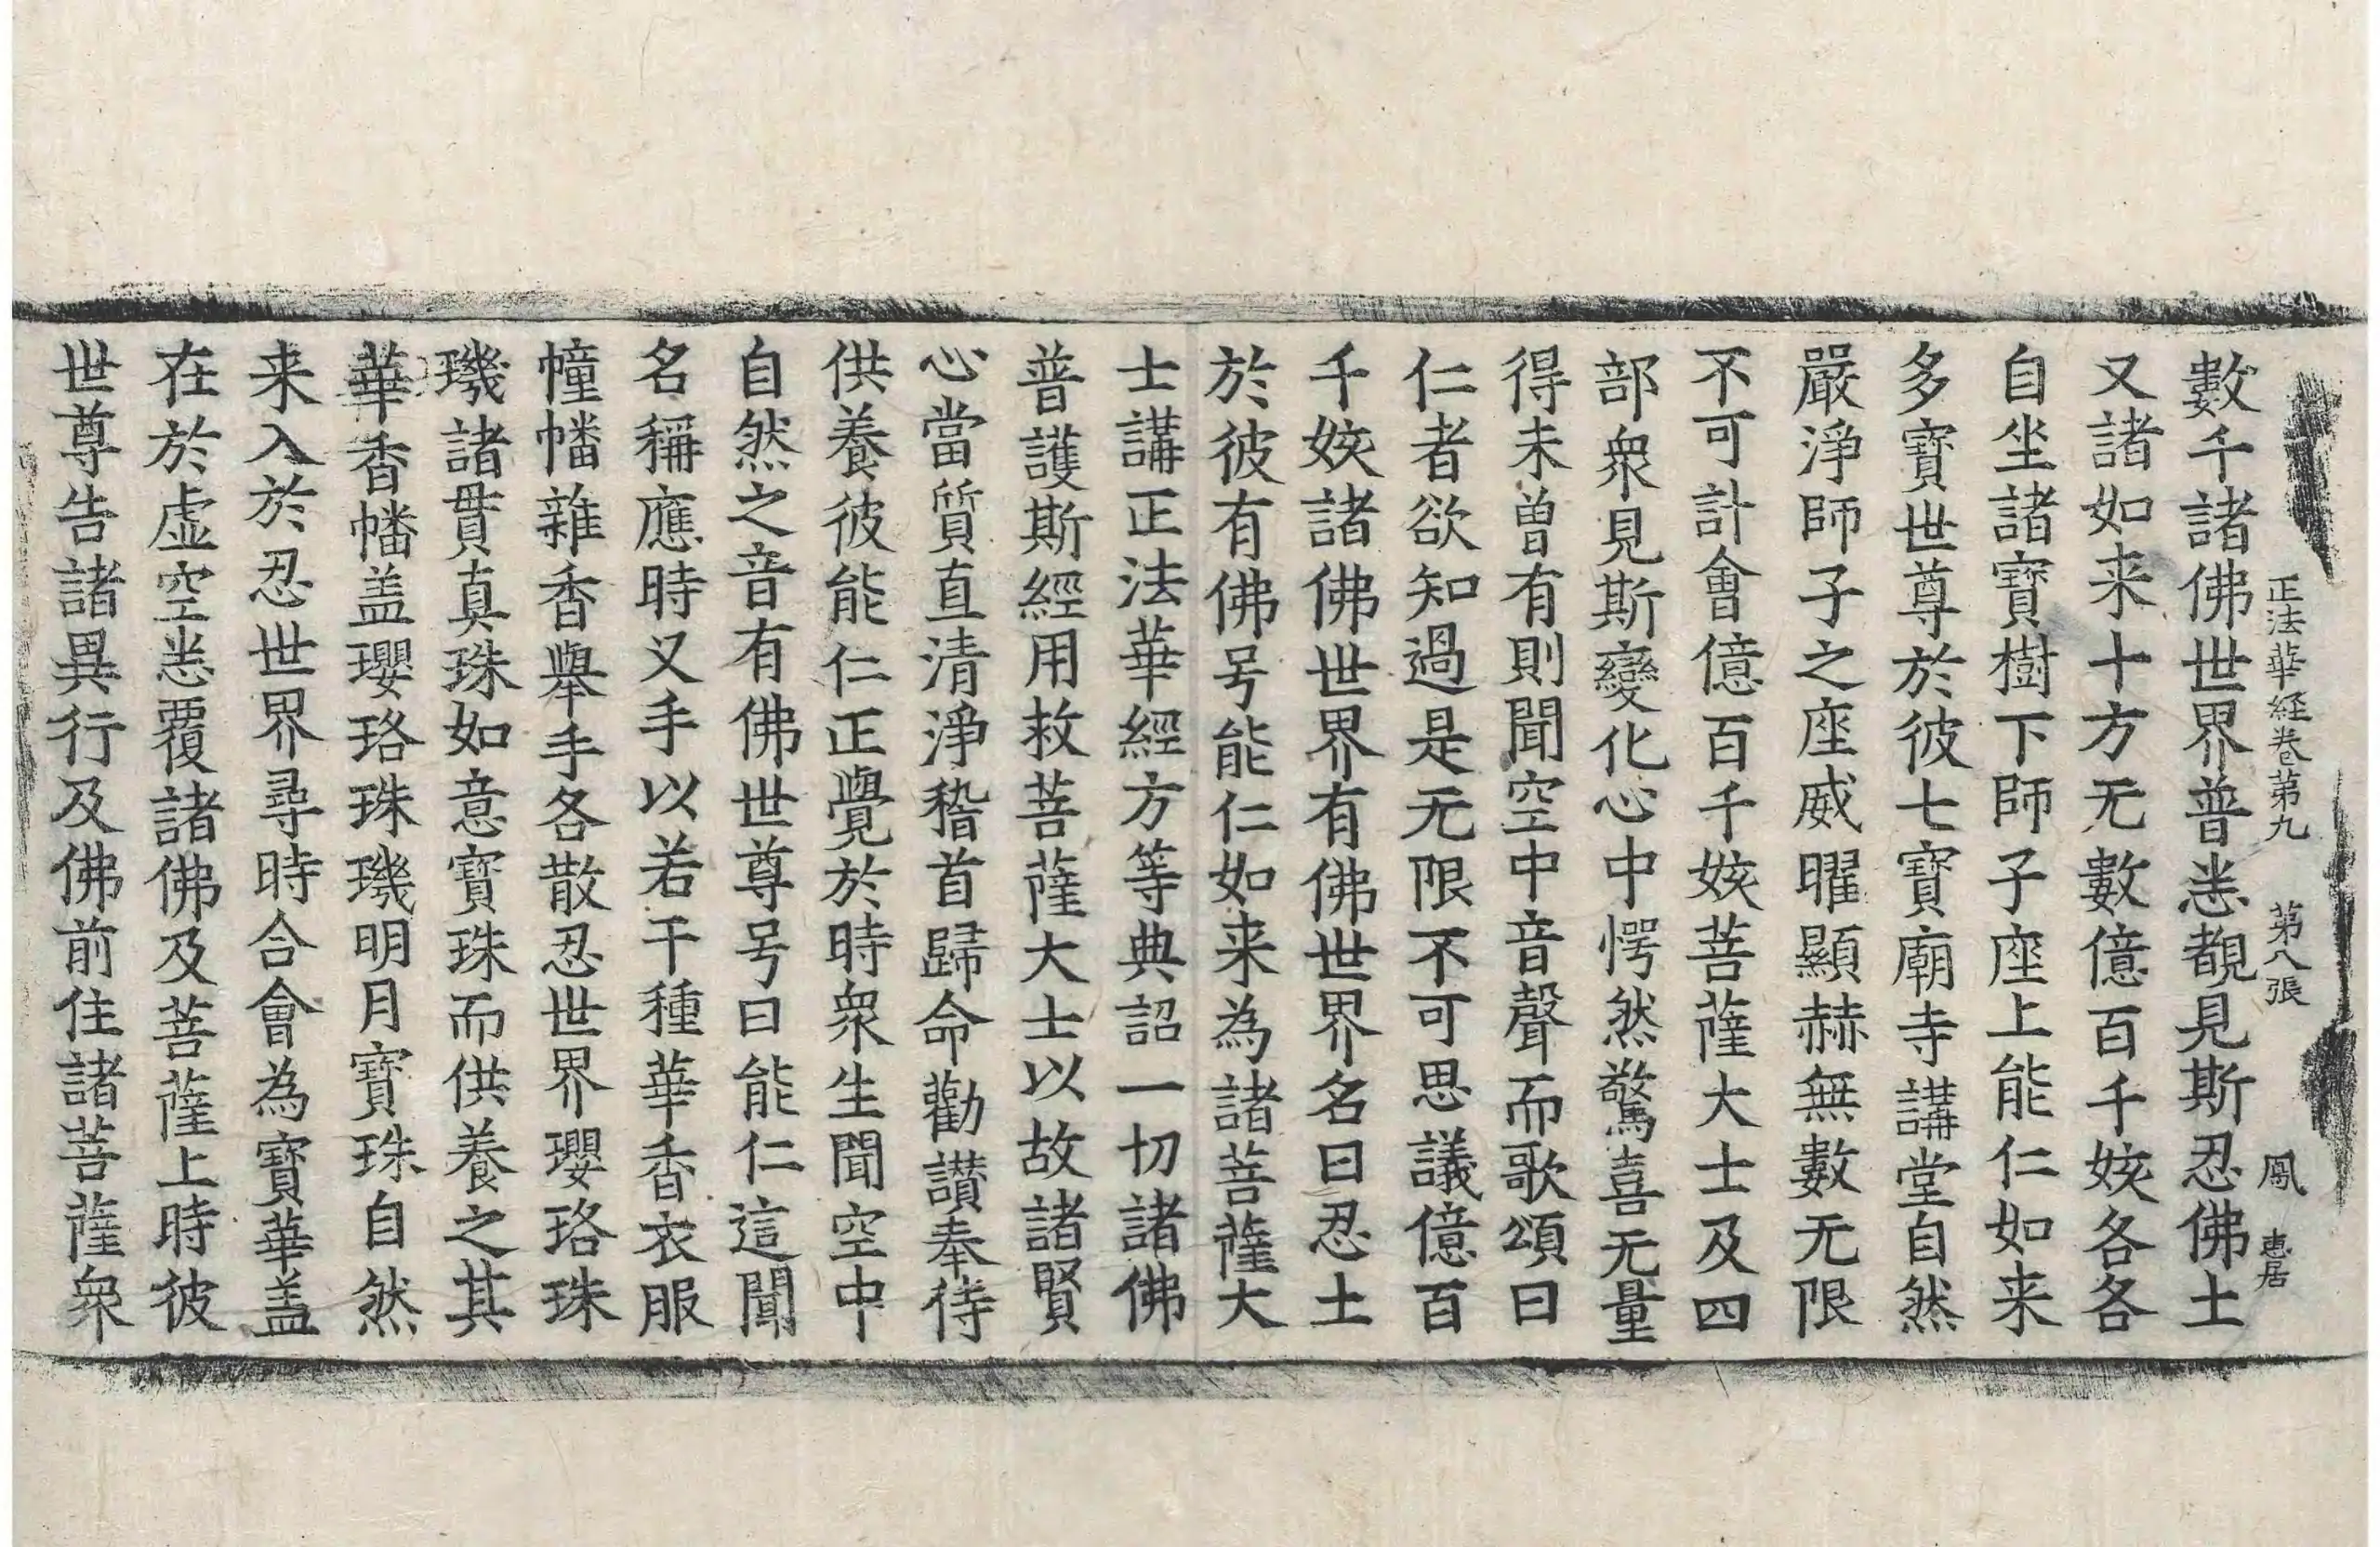 正法華経卷第九 第八張 鳳 惠居
數千諸佛世界普悉覩見斯忍佛土
又諸如来十方无數億百千姟各各
自坐諸寶樹下師子座上能仁如来
多寶世尊於彼七寶廟寺講堂自然
嚴淨師子之座威曜顯赫無數无限
不可計會億百千姟菩薩大士及四
部衆見斯變化心中愕然驚喜无量
得未曾有則聞空中音聲而歌頌曰
仁者欲知過是无限不可思議億百
千姟諸佛世界有佛世界名曰忍土
於彼有佛号能仁如来為諸菩薩大
士講正法華經方等典詔一切諸佛
普護斯經用救菩薩大士以故諸賢
心當質直清淨稽首歸命勸讃奉侍
供養彼能仁正覺於時衆生聞空中
自然之音有佛世尊号曰能仁這聞
名稱應時叉手以若干種華香衣服
幢幡雜香舉手各散忍世界瓔珞珠
璣諸貫真珠如意寶珠而供養之其
華香幡盖瓔珞珠璣明月寶珠自然
来入於忍世界尋時合會為寶華盖
在於虚空悉覆諸佛及菩薩上時彼
世尊告諸異行及佛前住諸菩薩衆